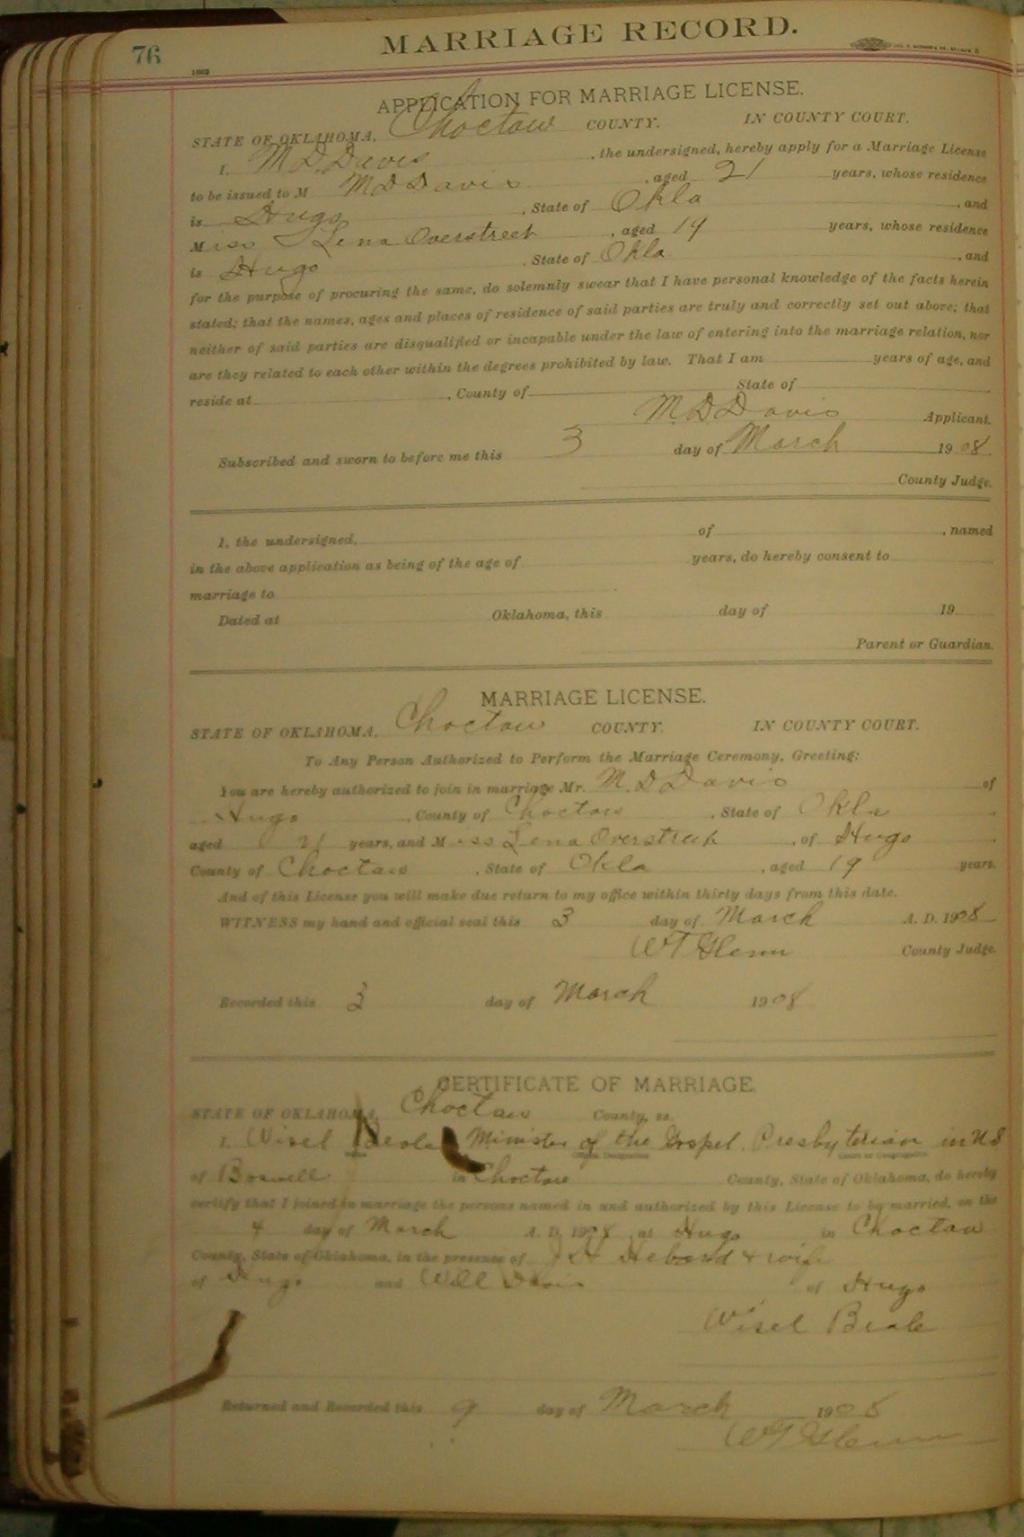 76
MARRIAGE RECORD.
APPLICATION FOR MARRIAGE LICENSE.
STATE OF OKLAHOMA, Choctaw COUNTY. IN COUNTY COURT.
I, M D. Davis, the undersigned, hereby apply for a Marriage License
to be issued to M M D Davis, aged 21 years, whose residence
is Hugo, State of Okla, and
Miss Lena Overstreet, aged 19 years, whose residence
is Hugo, State of Okla, and
for the purpose of procuring the same, do solemnly swear that I have personal knowledge of the facts herein
stated; that the names, ages and places of residence of said parties are truly and correctly set out above; that
neither of said parties are disqualified or incapable under the law of entering into the marriage relation, nor
are they related to each other within the degrees prohibited by law. That I am years of age, and
reside at, County of State of
M. D Davis Applicant.
Subscribed and sworn to before me this 3 day of March 1908.
County Judge.
I, the undersigned, of, named
in the above application as being of the age of years, do hereby consent to
marriage to
Dated at Oklahoma, this day of 19
Parent or Guardian.
MARRIAGE LICENSE.
STATE OF OKLAHOMA, Choctaw COUNTY. IN COUNTY COURT.
To Any Person Authorized to Perform the Marriage Ceremony, Greeting:
You are hereby authorized to join in marriage Mr. M. D Davis of
Hugo, County of Choctaw, State of Okla,
aged 21 years, and Miss Lena Overstreet, of Hugo
County of Choctaw, State of Okla, aged 19 years.
And of this License you will make due return to my office within thirty days from this date.
WITNESS my hand and official seal this 3 day of March A. D. 1908
WT Glenn County Judge.
Recorded this 3 day of March 1908
CERTIFICATE OF MARRIAGE.
STATE OF OKLAHOMA, Choctaw County, ss.
I, Wisel Beale Minister of the Gospel. Presbyterian in U S
of Boswell in Choctaw County, State of Oklahoma, do hereby
certify that I joined in marriage the persons named in and authorized by this License to be married, on the
4 day of March A. D. 1908, at Hugo in Choctaw
County, State of Oklahoma, in the presence of H & wife
of Hugo and Will Davis of Hugo
Wisel Beale
Returned and Recorded this 9 day of March 1908
WT Glenn